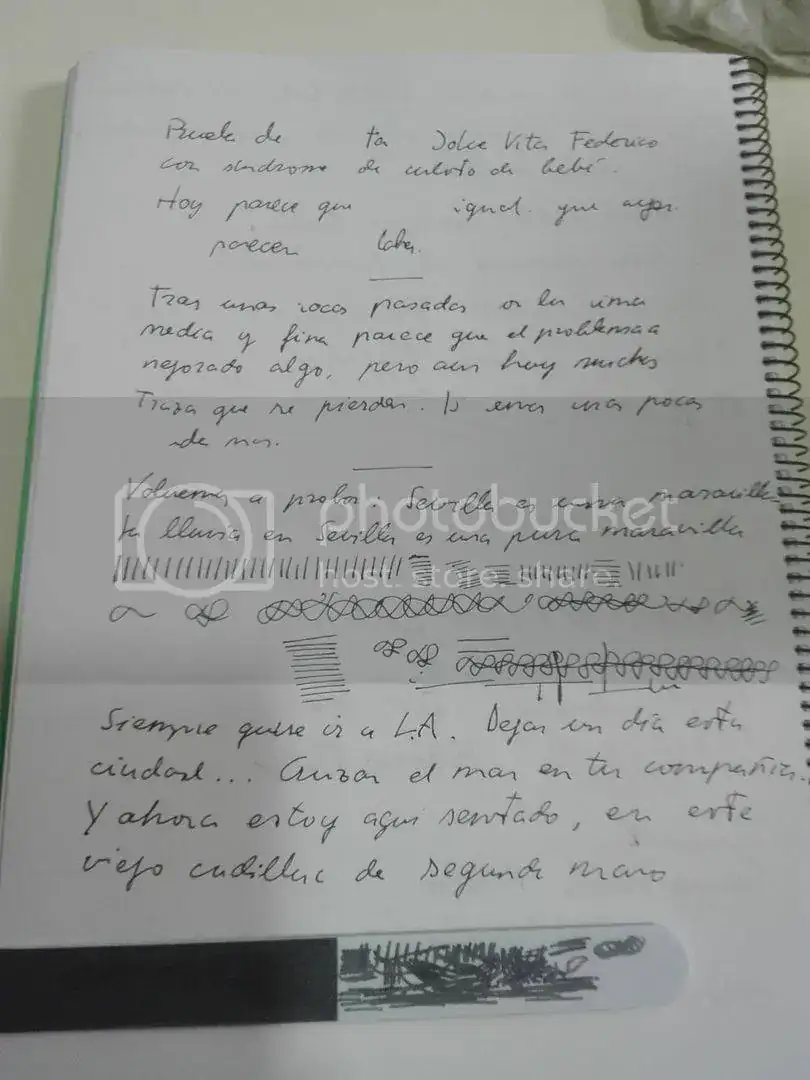 Prueba de ta Dolce Vita Federico
con síndrome de culito de bebé.
Hoy parece que igual que ayer.
parecen
Tras unas pasadas la
media y fina parece que el problema a
mejorado algo, pero aun hay muchos
Trazos que se pierden. unas pocas
de mas.
Volvemos a probar: Sevilla es una maravilla
la lluvia en Sevilla es una pura maravilla
photobucket
host. store. share.
Siempre quise ir a L.A. Dejar un día esta
ciudad... Cruzar el mar en tu compañía.
Y ahora estoy aqui sentado, en este
viejo cadillac de segunda mano